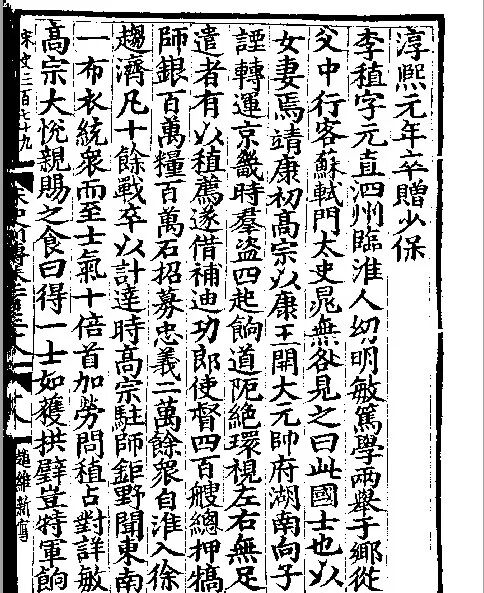 淳熙元年卒贈少保
李稙字元直泗州臨淮人幼明敏篤學兩舉于鄉從
父中行客蘇軾門太史晁無咎見之曰此國士也以
女妻焉靖康初髙宗以康王開大元帥府湖南向子
諲轉運京畿時羣盗四起餉道阨絶環視左右無足
遣者有以稙薦遂借補迪功郎使督四百艘總押犒
師銀百萬糧百萬石招募忠義二萬餘衆自淮入徐
趨濟凡十餘戰卒以計達時高宗駐師鉅野聞東南
一布衣統衆而至士氣十倍首加勞問稙占對詳敏
高宗大悅親賜之食曰得一士如獲拱璧豈特軍餉
三百七十九
十八
趙維新